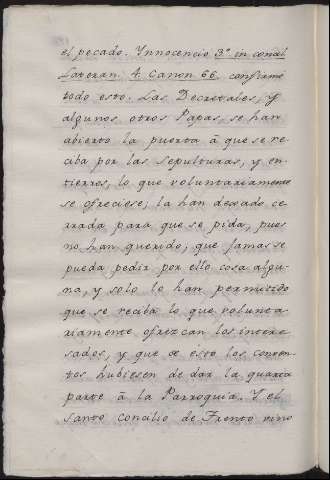 el pecado. Ynnocencio 3º in concil
Lateran. 4. Canon 66. confirmó
todo esto. Las Decretales, y
algunos otros Papas, se han
abierto la puerta à que se re-
ciba por las sepulturas, y en-
tierros, lo que voluntariamente
se ofreciese; la han dexado ce-
rrada para que se pida, pues
no han querido, que jamas se
pueda pedir por ello cosa algu-
na, y solo lo han permitido
que se reciba lo que volunta-
riamente ofrezcan los intere-
sados, y que de esto los conven-
tos hubiesen de dar la quarta
parte à la Parroquia. Y el
Santo Concilio de Trento vino